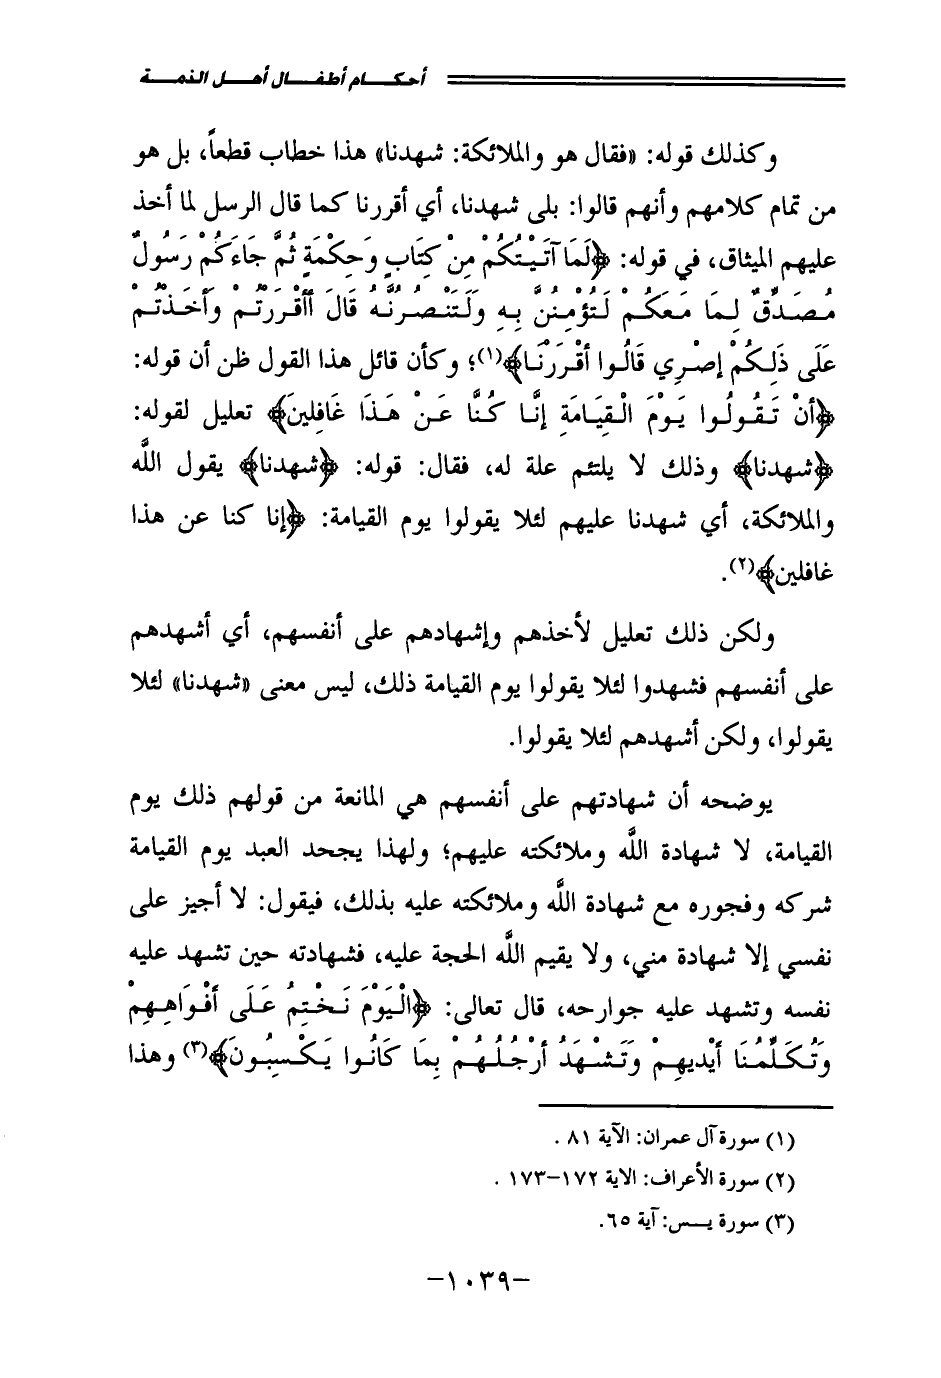 أحكام أطفال أهل الذمة
وكذلك قوله: «فقال هو والملائكة: شهدنا» هذا خطاب قطعاً، بل هو
من تمام كلامهم وأنهم قالوا: بلى شهدنا، أي أقررنا كما قال الرسل لما أخذ
عليهم الميثاق، في قوله: ﴿لَمَا آتَيْتُكُمْ مِنْ كِتَابٍ وَحِكْمَةٍ ثُمَّ جَاءَكُمْ رَسُولٌ
مُصَدِّقٌ لِمَا مَعَكُمْ لَتُؤْمِنُنَّ بِهِ وَلَتَنْصُرُنَّهُ قَالَ أَأَقْرَرْتُمْ وَأَخَذْتُمْ
عَلَى ذَلِكُمْ إِصْرِي قَالُوا أَقْرَرْنَا﴾(١)؛ وكأن قائل هذا القول ظن أن قوله:
﴿أَنْ تَقُولُوا يَوْمَ الْقِيَامَةِ إِنَّا كُنَّا عَنْ هَذَا غَافِلِينَ﴾ تعليل لقوله:
﴿شهدنا﴾ وذلك لا يلتئم علة له، فقال: قوله: ﴿شهدنا﴾ يقول اللَّه
والملائكة، أي شهدنا عليهم لئلا يقولوا يوم القيامة: ﴿إنا كنا عن هذا
غافلين﴾(٢).
ولكن ذلك تعليل لأخذهم وإشهادهم على أنفسهم، أي أشهدهم
على أنفسهم فشهدوا لئلا يقولوا يوم القيامة ذلك، ليس معنى «شهدنا» لئلا
يقولوا، ولكن أشهدهم لئلا يقولوا.
يوضحه أن شهادتهم على أنفسهم هي المانعة من قولهم ذلك يوم
القيامة، لا شهادة اللَّه وملائكته عليهم؛ ولهذا يجحد العبد يوم القيامة
شركه وفجوره مع شهادة اللَّه وملائكته عليه بذلك، فيقول: لا أجيز على
نفسي إلا شهادة مني، ولا يقيم اللَّه الحجة عليه، فشهادته حين تشهد عليه
نفسه وتشهد عليه جوارحه، قال تعالى: ﴿الْيَوْمَ نَخْتِمُ عَلَى أَفْوَاهِهِمْ
وَتُكَلِّمُنَا أَيْدِيهِمْ وَتَشْهَدُ أَرْجُلُهُمْ بِمَا كَانُوا يَكْسِبُونَ﴾(٣) وهذا
(١) سورة آل عمران: الآية ٨١ .
(٢) سورة الأعراف: الاية ١٧٢-١٧٣ .
(٣) سورة يــس: آية ٦٥.
-١٠٣٩-